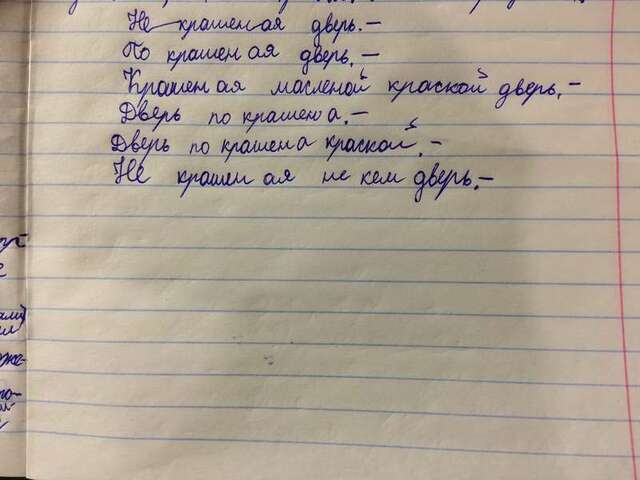 Не крашен ая дверь. –
По крашен ая дверь. –
Крашен ая масленой краской дверь. –
Дверь по крашена. –
Дверь по крашена краской. –
Не крашен ая не кем дверь. –